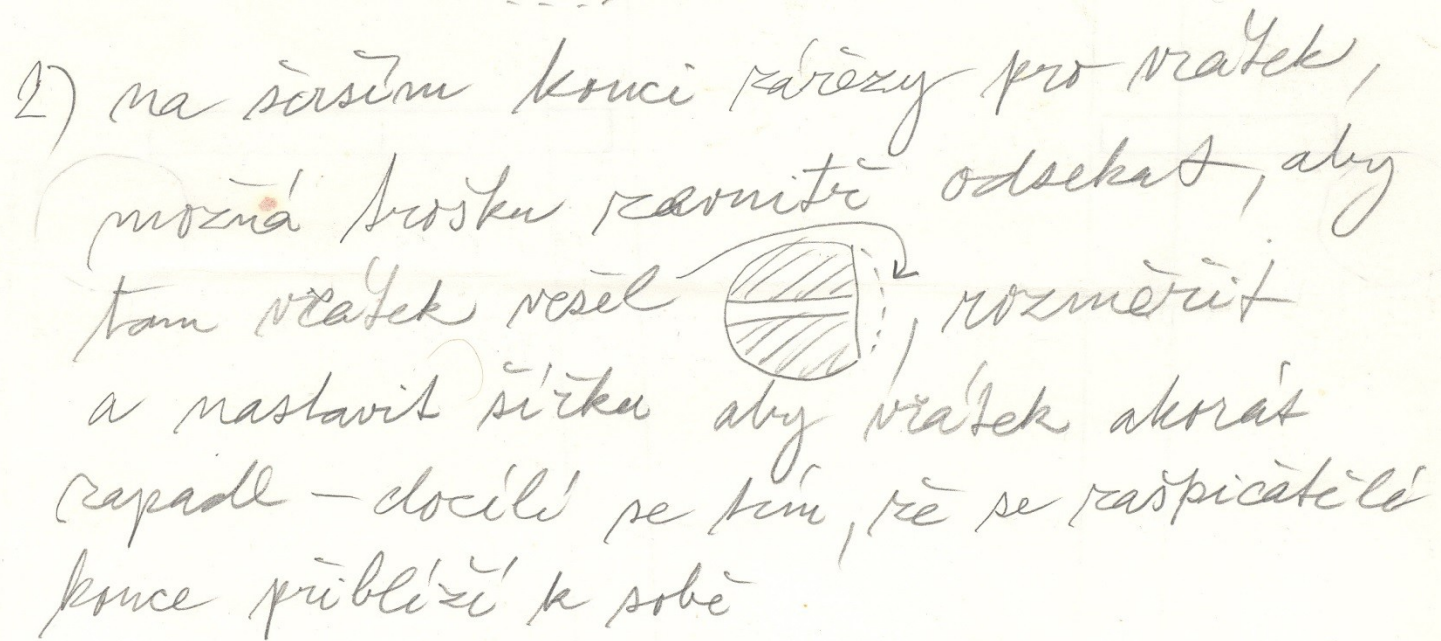 2) na širším konci zářezy pro vrátek,
možná trošku zevnitř odsekat, aby
tam vrátek vešel , rozměřit
a nastavit šířku aby vrátek akorát
zapadl – docílí se tím, že se zašpičatělé
konce přiblíží k sobě